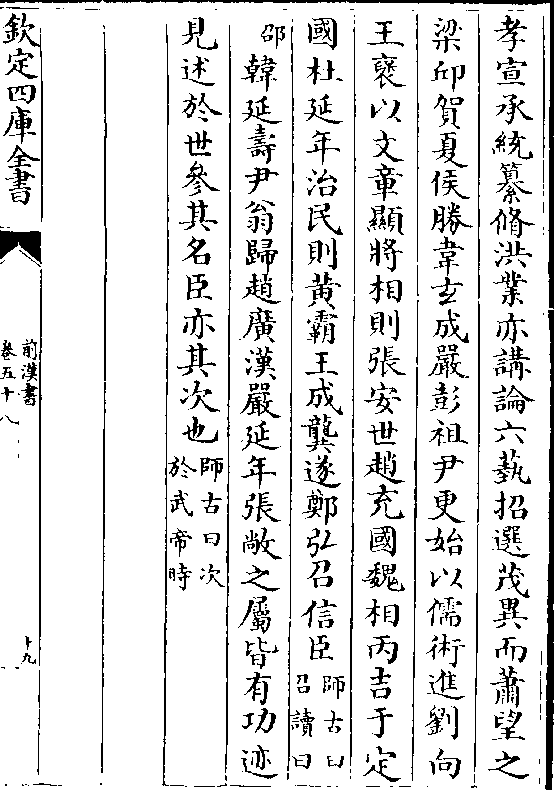 孝宣承統纂脩洪業亦講論六藝招選茂異而蕭望之
梁邱賀夏侯勝韋𤣥成嚴彭祖尹更始以儒術進劉向
王襃以文章顯將相則張安世趙充國魏相丙吉于定
國杜延年治民則黃霸王成龔遂鄭弘召信臣師古曰召讀曰
邵韓延壽尹翁歸趙廣漢嚴延年張敞之屬皆有功迹
見述於世參其名臣亦其次也師古曰次於武帝時
欽定四庫全書
前漢書
卷五十八
十九